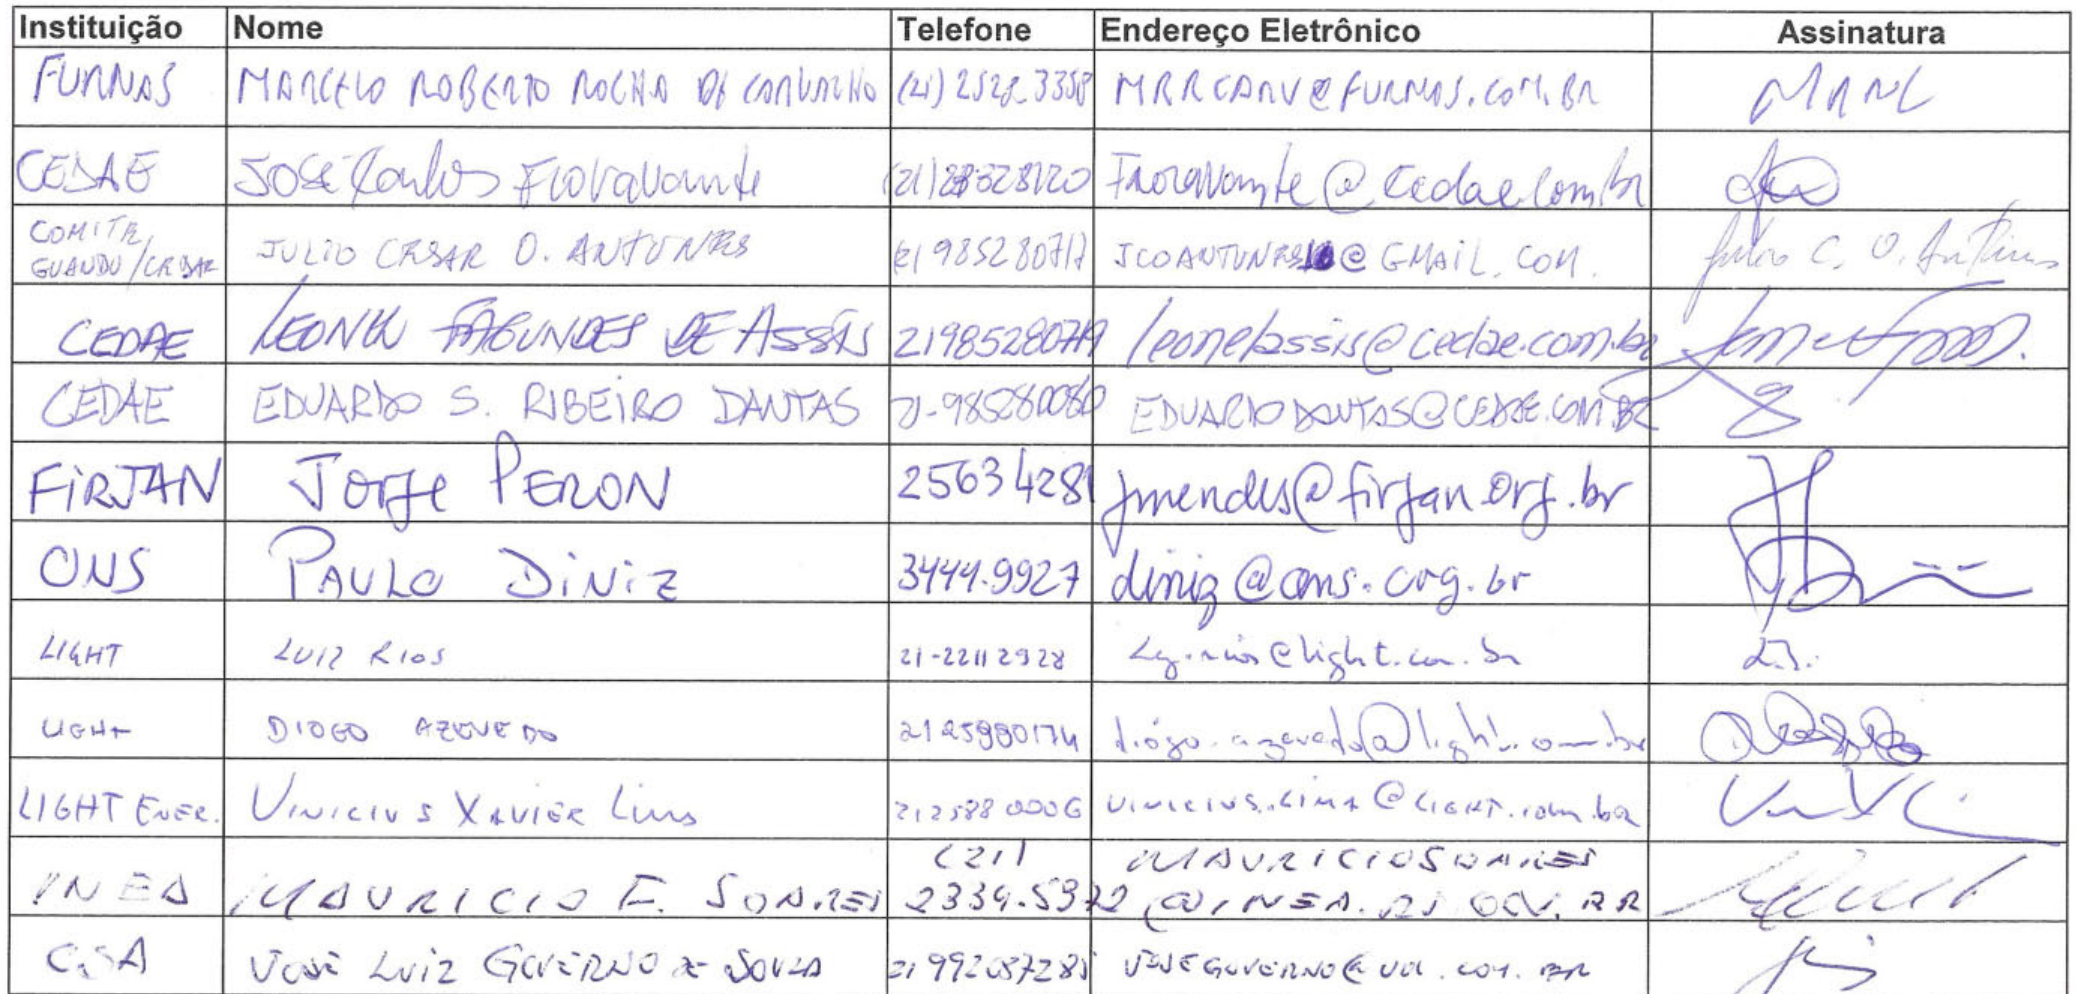 Instituição Nome Telefone Endereço Eletrônico Assinatura
FURNAS MARCELO ROBERTO ROCHA DE CARVALHO (21) 2528 3358 MRRCARV@FURNAS.COM.BR MRRC
CEDAE José Carlos Fioravante Fioravante@cedae.com.br
COMITE GUANDU/CEDAE JULIO CESAR O. ANTUNES @GMAIL.COM. Julio C. O. Antunes
CEDAE LEONEL FAGUNDES DE ASSIS leonelassis@cedae.com.br
CEDAE EDUARDO S. RIBEIRO DANTAS 21-985280080 EDUARDODANTAS@CEDAE.COM.BR
FIRJAN Jorge PERON 25634281 jmendes@firjan.org.br
ONS PAULO DINIZ 3444-9927 diniz@ons.org.br
LIGHT LUIZ RIOS 21-22112928
LIGHT DIOGO AZEVEDO diogo.azevedo@light.com.br
LIGHT ENER. VINICIUS XAVIER Lima 212588 0006 VINICIUS.LIMA@LIGHT.com.br
INEA MAURICIO F. SOARES (21) 2334.5972 MAURICIOSOARES @INEA.RJ.GOV.BR
CSA JOSÉ LUIZ GOVERNO de SOUZA JOSEGOVERNO@UOL.COM.BR